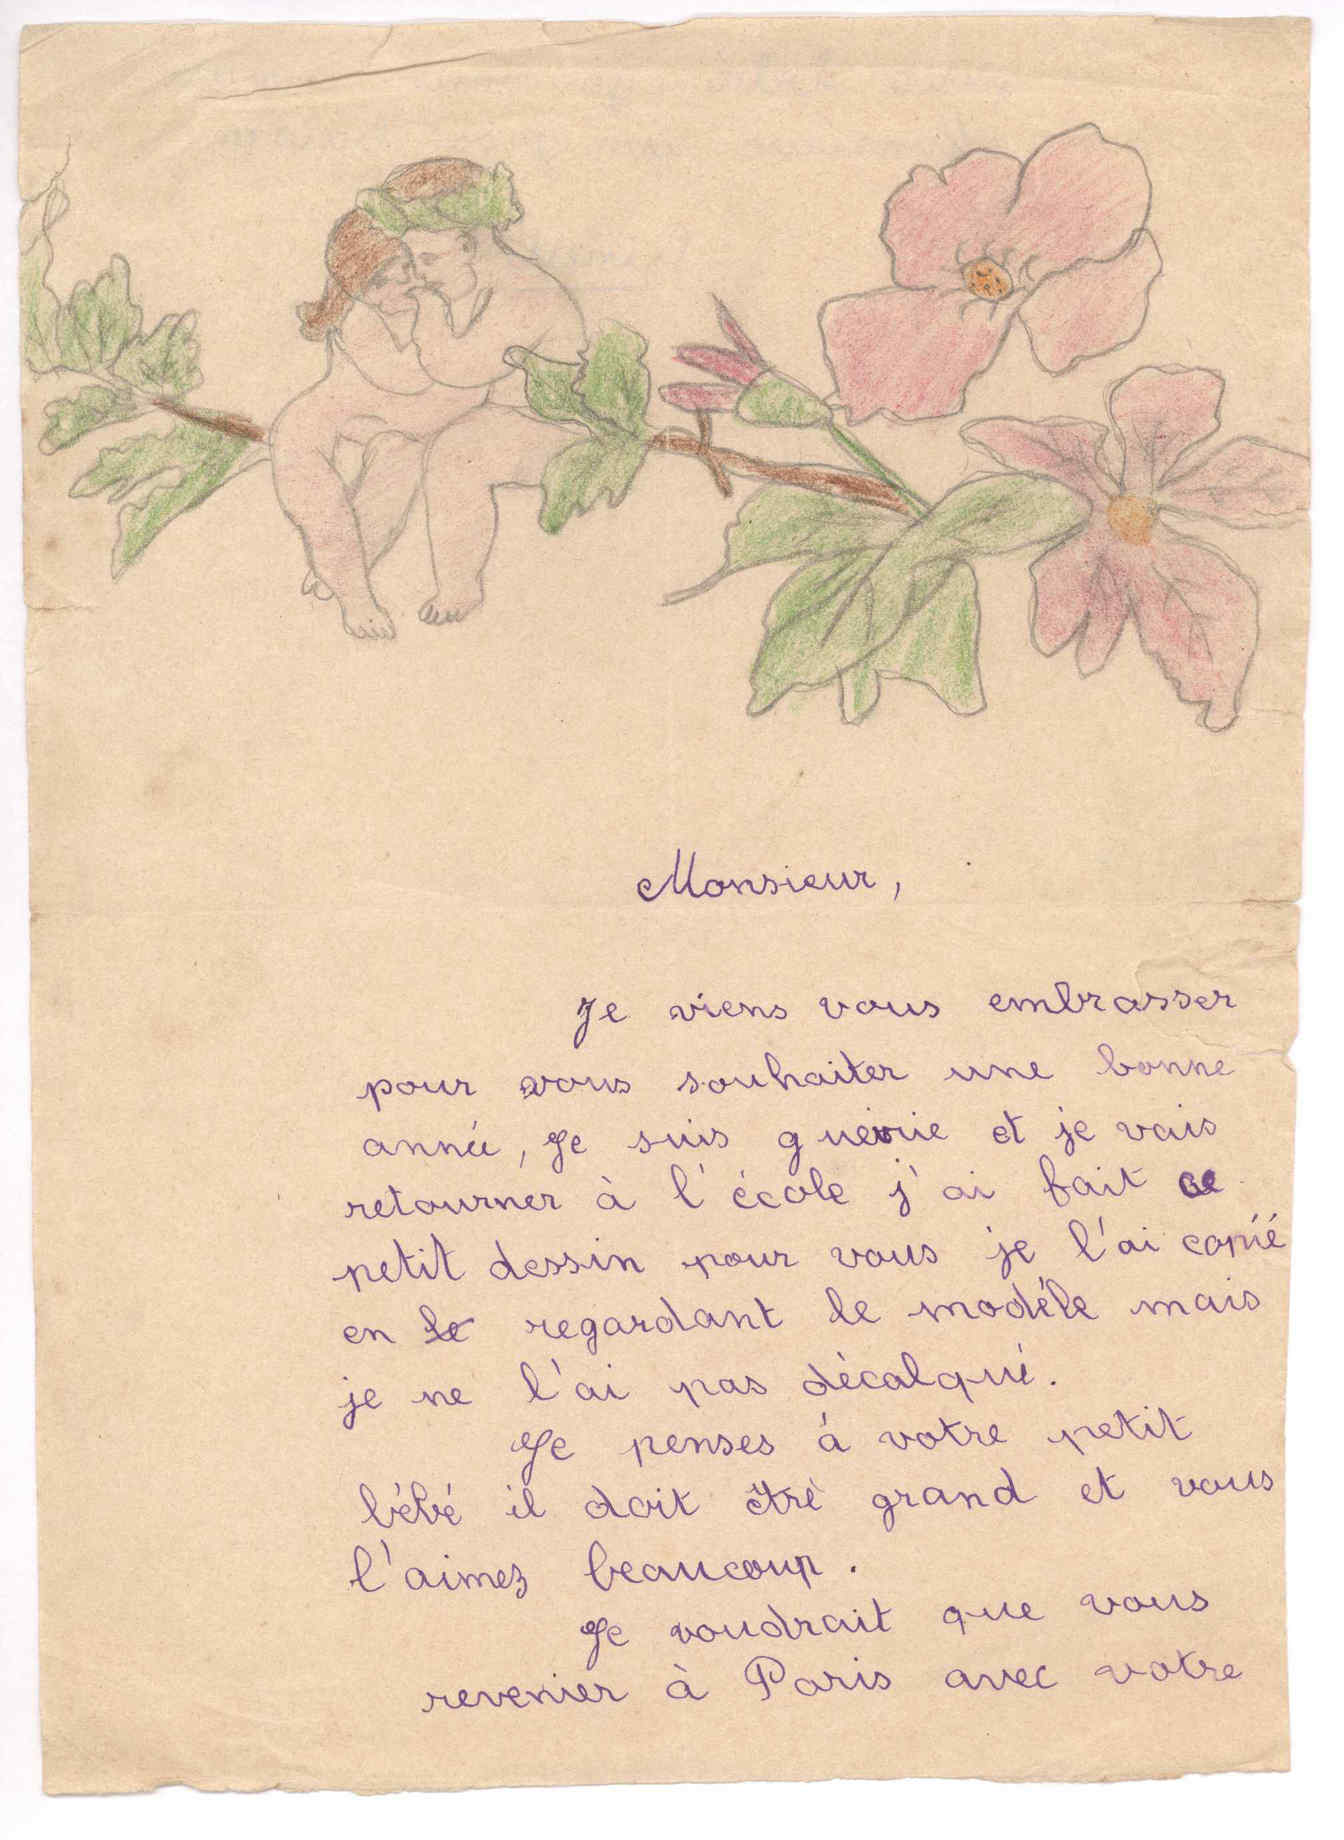 Monsieur,
Je viens vous embrasser
pour vous souhaiter une bonne
année, Je suis guérrie et je vais
retourner à l'école j'ai fait ce
petit dessin pour vous je l'ai copié
en le regardant le modéle mais
je ne l'ai pas dècalqué.
Je penses à votre petit
bébé il doit être grand et vous
l'aimez beaucoup.
Je voudrait que vous
revenier à Paris avec votre